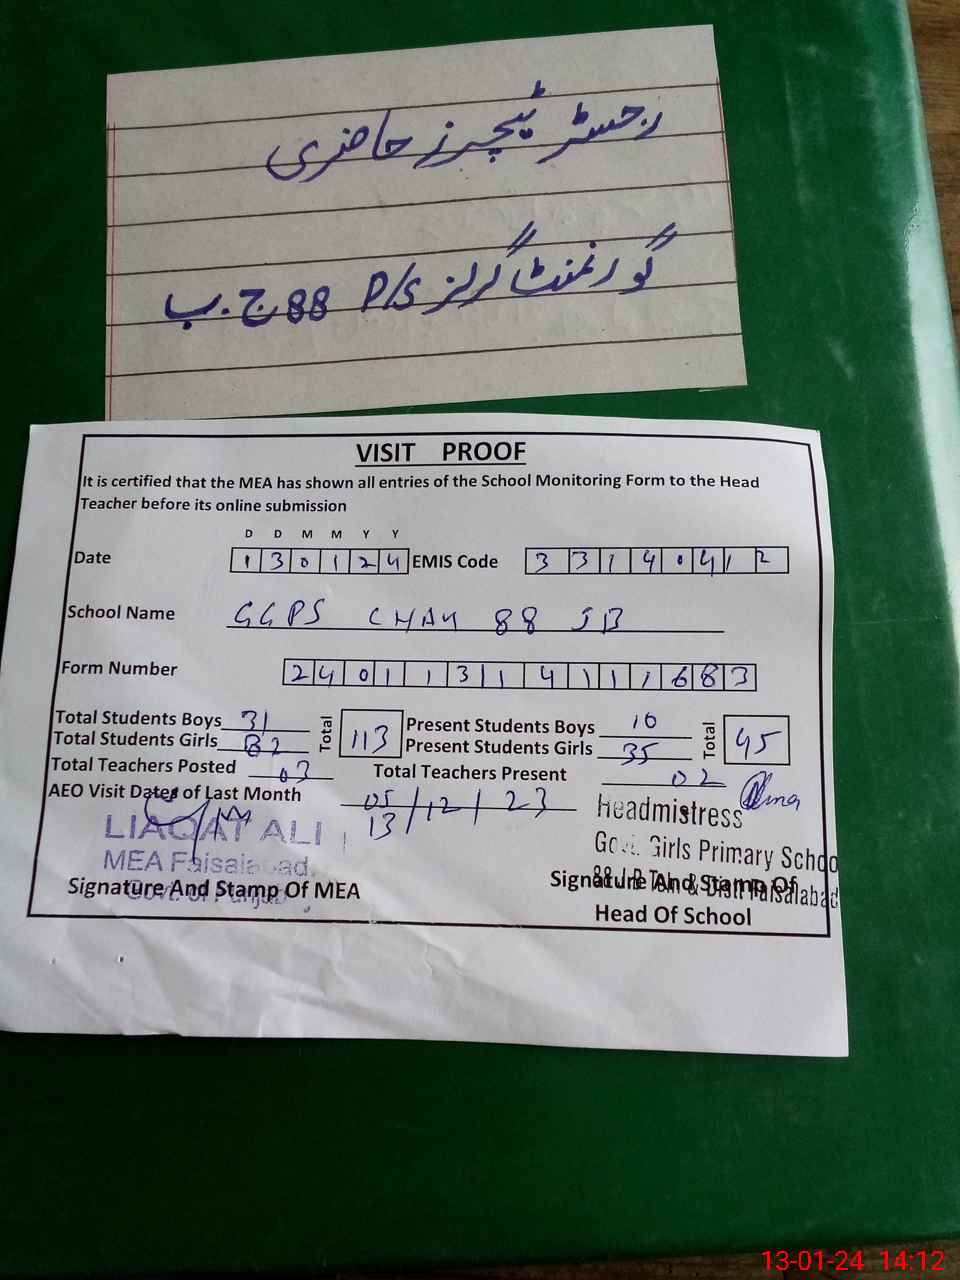 رجسٹر ٹیچرز حاضری
گورنمنٹ گرلز P/S 88 ج.ب
VISIT PROOF
It is certified that the MEA has shown all entries of the School Monitoring Form to the Head
Teacher before its online submission
D D M M Y Y
Date 130124 EMIS Code 33140412
School Name GGPS CHAK 88 JB
Form Number 24011314111683
Total Students Boys 31 Total 113 Present Students Boys 10 Total 45
Total Students Girls 82 Present Students Girls 35
Total Teachers Posted 03 Total Teachers Present 02
AEO Visit Dates of Last Month 05/12/23
13
LIAQAT ALI
MEA Faisalabad
Govt. of Punjab
Signature And Stamp Of MEA
Headmistress
Govt. Girls Primary Schoo
88 J.B Teh. & Distt Faisalabad
Signature And Stamp Of
Head Of School
13-01-24 14:12